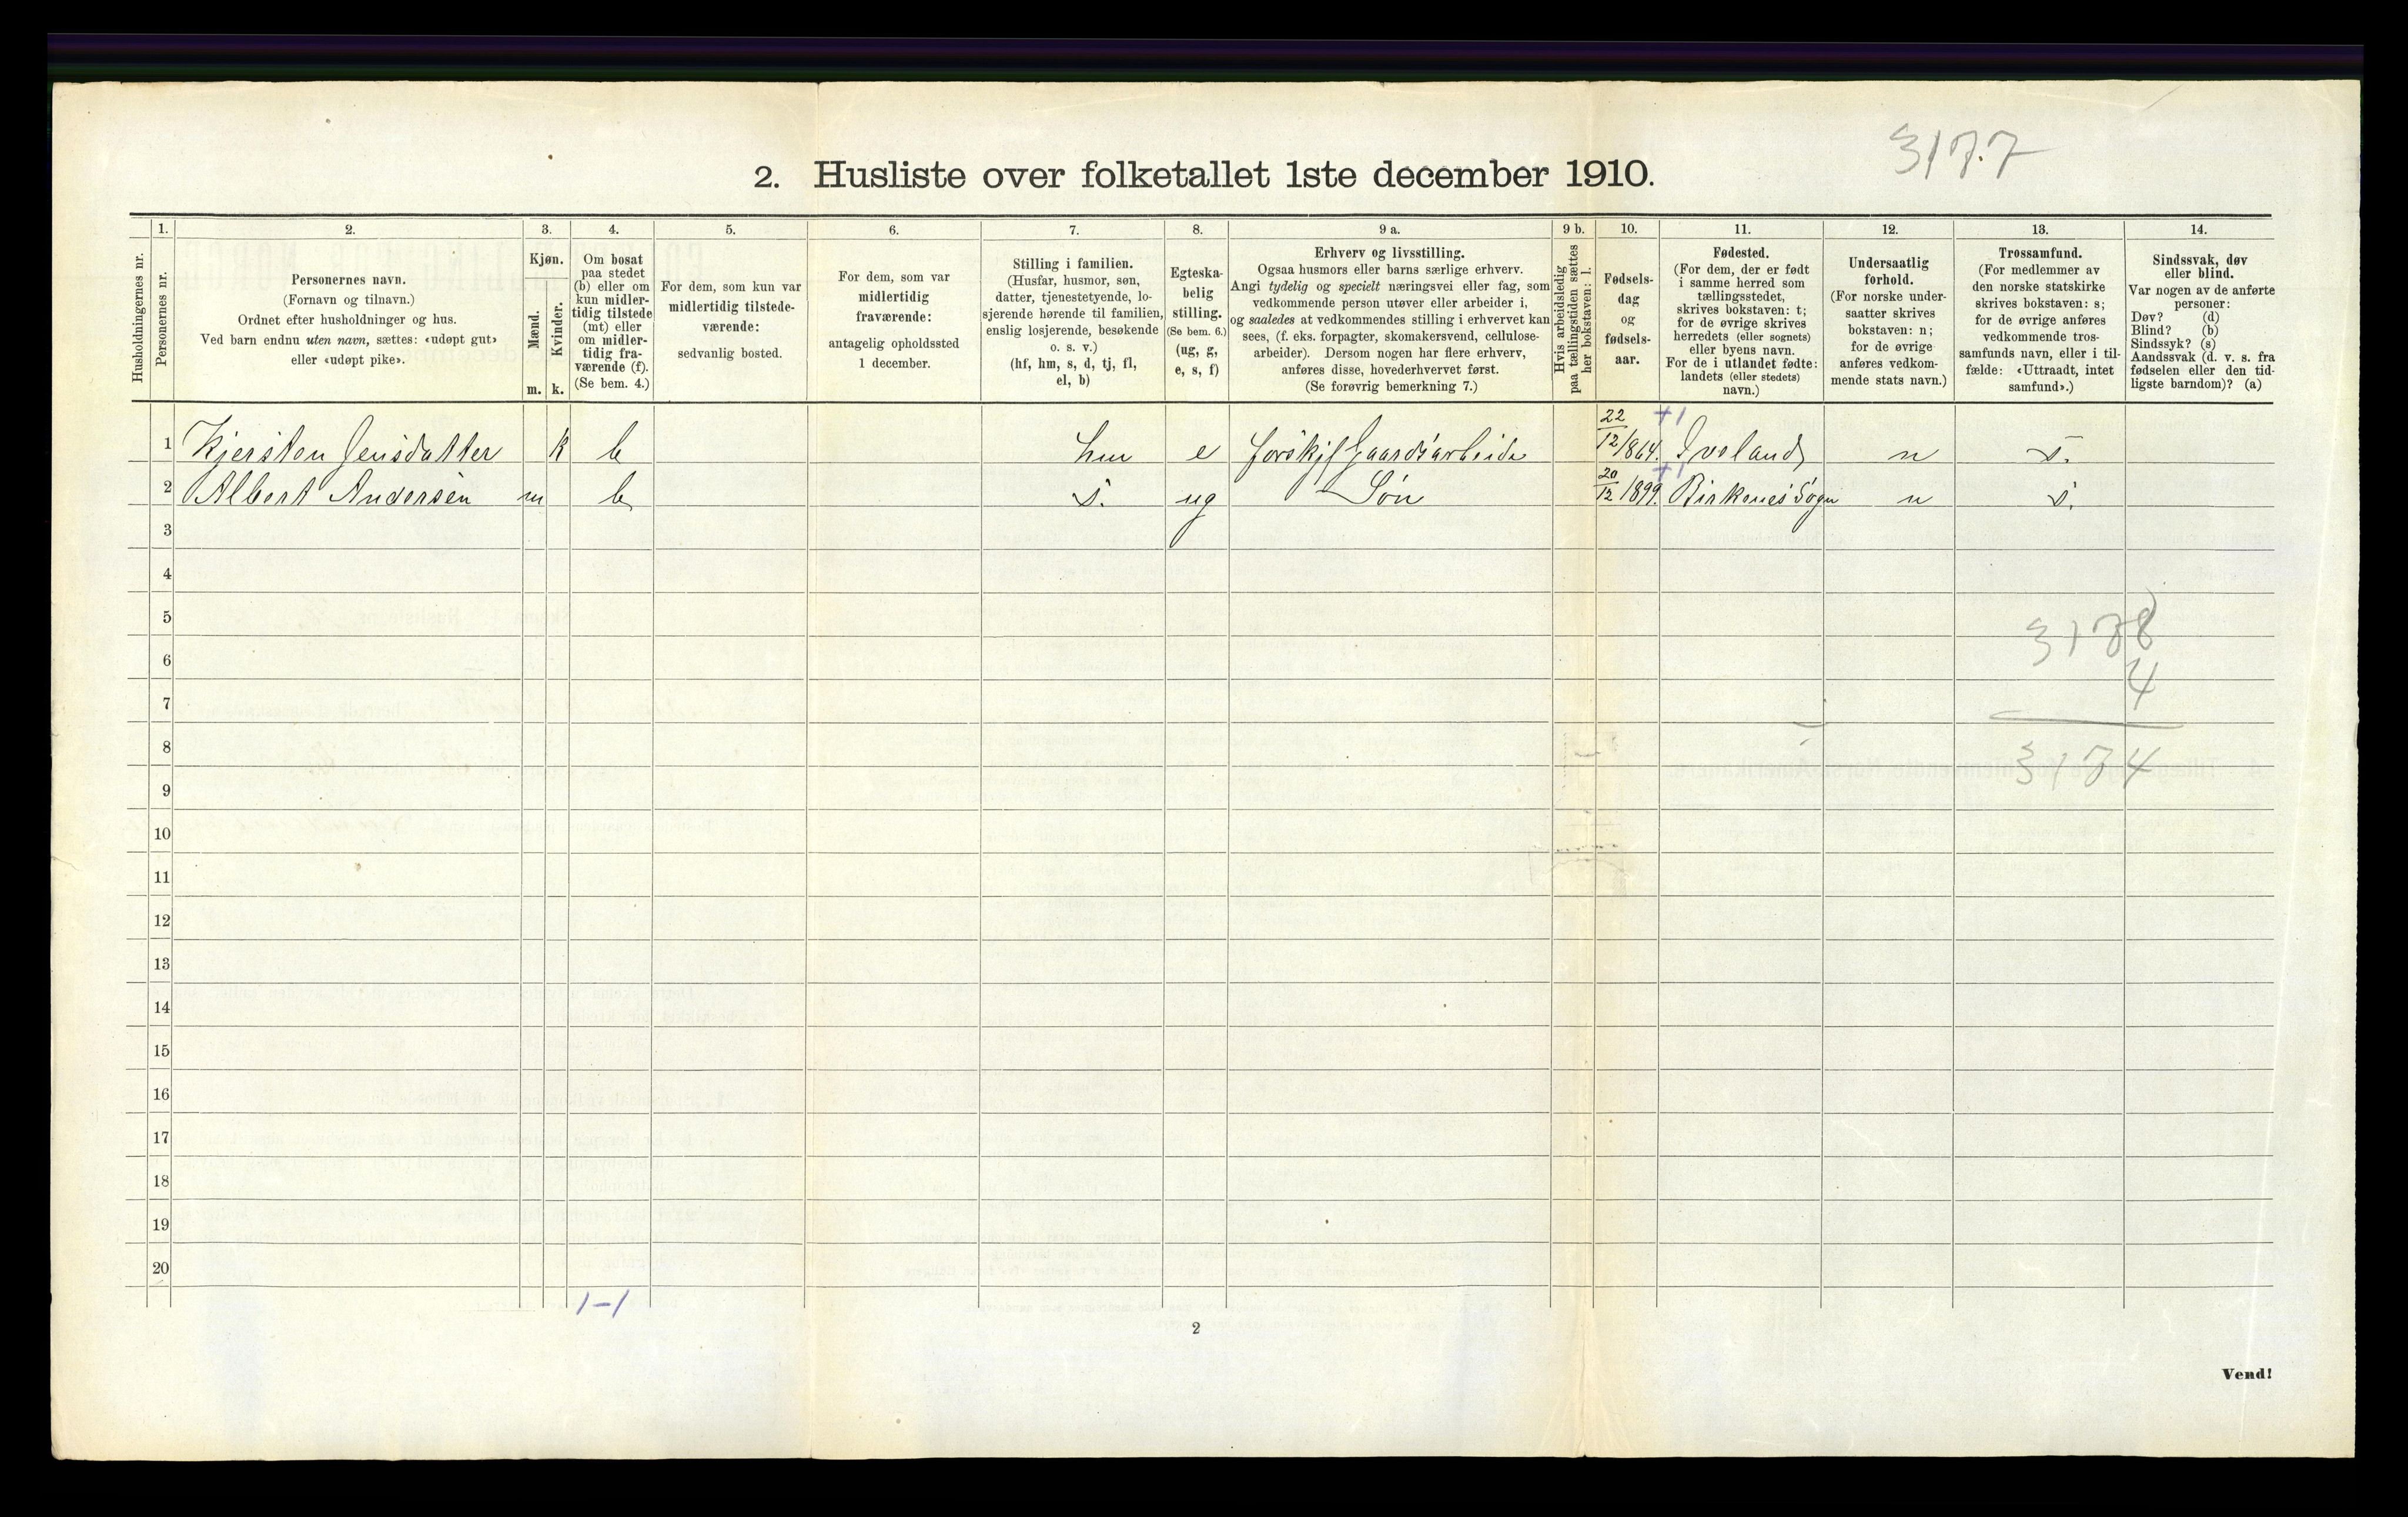 3177
2. Husliste over folketallet 1ste december 1910.
Husholdningernes nr.
1.
Personernes nr.
2.
Personernes navn.
(Fornavn og tilnavn.)
Ordnet efter husholdninger og hus.
Ved barn endnu uten navn, sættes: «udøpt gut»
eller «udøpt pike».
3.
Kjøn.
Mænd.
Kvinder.
m. k.
4.
Om bosat
paa stedet
(b) eller om
kun midler-
tidig tilstede
(mt) eller
om midler-
tidig fra-
værende (f).
(Se bem. 4.)
5.
For dem, som kun var
midlertidig tilstede-
værende:
sedvanlig bosted.
6.
For dem, som var
midlertidig
fraværende:
antagelig opholdssted
1 december.
7.
Stilling i familien.
(Husfar, husmor, søn,
datter, tjenestetyende, lo-
sjerende hørende til familien,
enslig losjerende, besøkende
o. s. v.)
(hf, hm, s, d, tj, fl,
el, b)
8.
Egteska-
belig
stilling.
(Se bem. 6.)
(ug, g,
e, s, f)
9 a.
Erhverv og livsstilling.
Ogsaa husmors eller barns særlige erhverv.
Angi tydelig og specielt næringsvei eller fag, som
vedkommende person utøver eller arbeider i,
og saaledes at vedkommendes stilling i erhvervet kan
sees, (f. eks. forpagter, skomakersvend, cellulose-
arbeider). Dersom nogen har flere erhverv,
anføres disse, hovederhvervet først.
(Se forøvrig bemerkning 7.)
9 b.
Hvis arbeidsledig
paa tællingstiden sættes
her bokstaven: l.
10.
Fødsels-
dag
og
fødsels-
aar.
11.
Fødested.
(For dem, der er født
i samme herred som
tællingsstedet,
skrives bokstaven: t;
for de øvrige skrives
herredets (eller sognets)
eller byens navn.
For de i utlandet fødte:
landets (eller stedets)
navn.)
12.
Undersaatlig
forhold.
(For norske under-
saatter skrives
bokstaven: n;
for de øvrige
anføres vedkom-
mende stats navn.)
13.
Trossamfund.
(For medlemmer av
den norske statskirke
skrives bokstaven: s;
for de øvrige anføres
vedkommende tros-
samfunds navn, eller i til-
fælde: «Uttraadt, intet
samfund».)
14.
Sindssvak, døv
eller blind.
Var nogen av de anførte
personer:
Døv? (d)
Blind? (b)
Sindssyk? (s)
Aandssvak (d. v. s. fra
fødselen eller den tid-
ligste barndom)? (a)
1 Kjersten Jensdatter k b hm e forskjl Gaardsarbeide 22/12/864. +1 Iveland n s.
2 Albert Andersen m b s. ug Søn 20/12 1899. +1 Birkenes Sogn n s.
3
4
5
6
7
8
9
10
11
12
13
14
15
16
17
18
19
20
3178
4
3174
1-1
2
Vend!